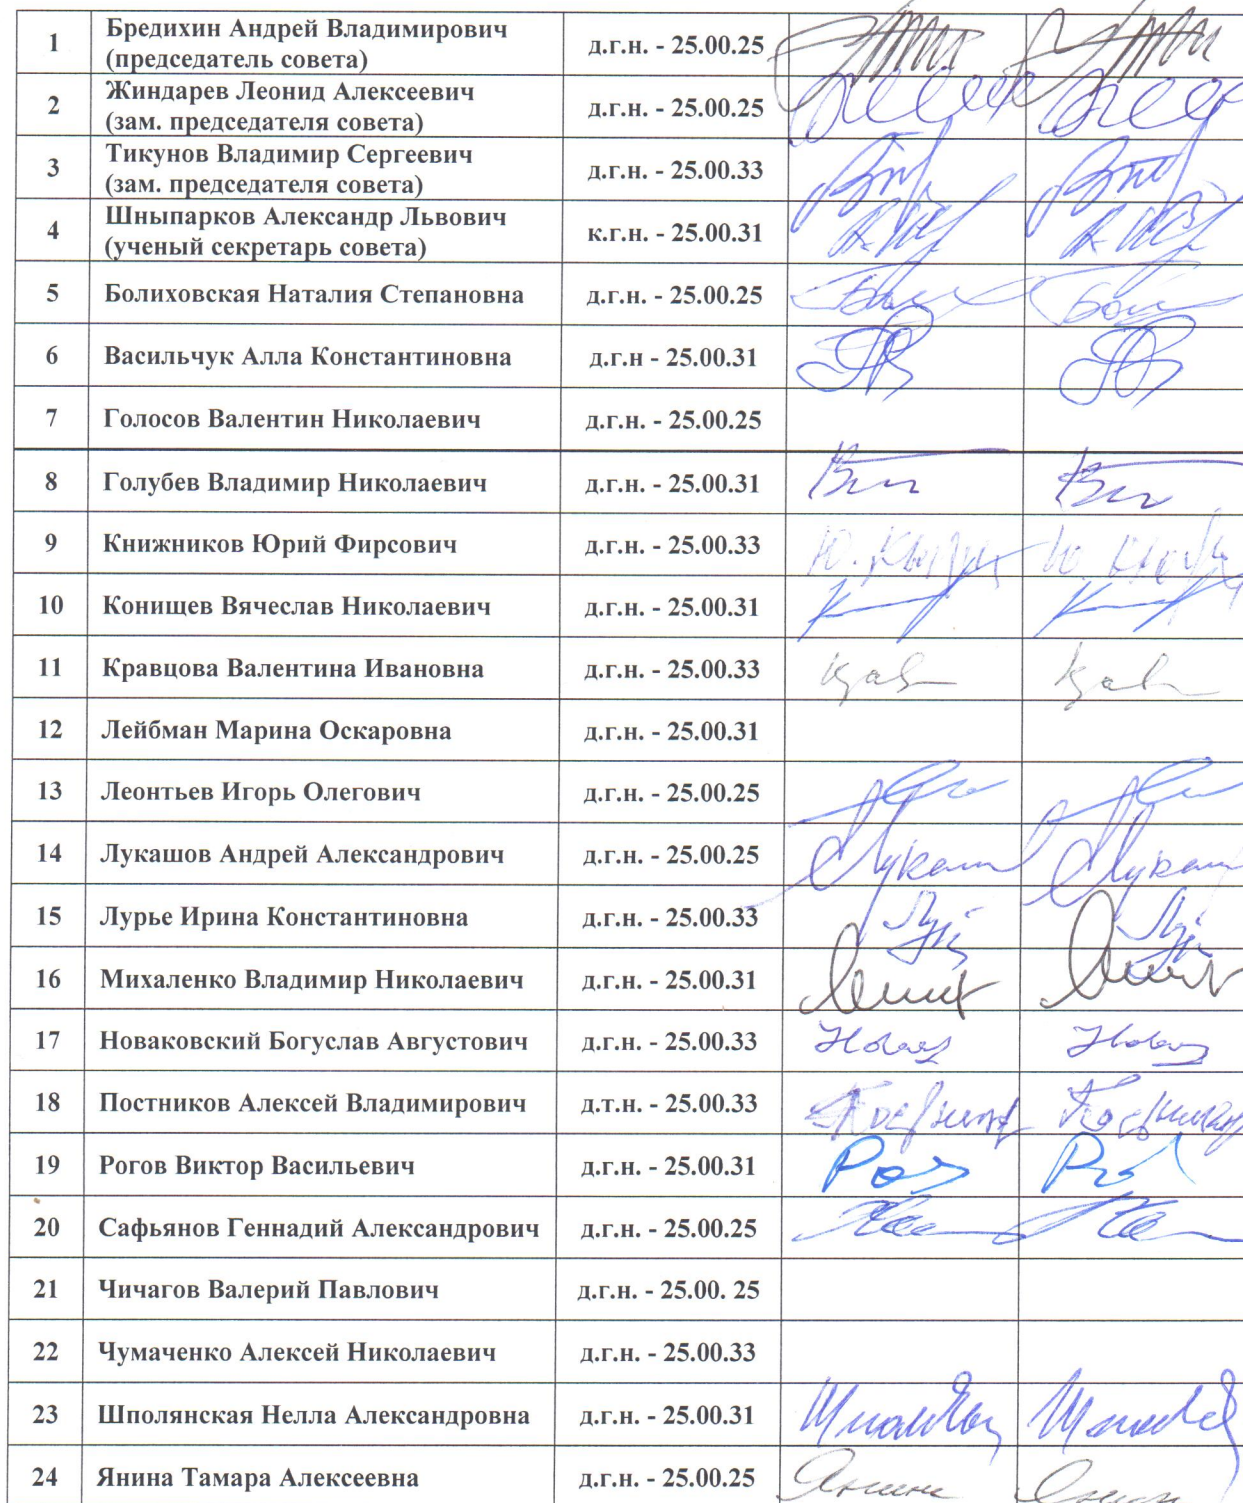 1 Бредихин Андрей Владимирович
(председатель совета) д.г.н. - 25.00.25
2 Жиндарев Леонид Алексеевич
(зам. председателя совета) д.г.н. - 25.00.25
3 Тикунов Владимир Сергеевич
(зам. председателя совета) д.г.н. - 25.00.33
4 Шныпарков Александр Львович
(ученый секретарь совета) к.г.н. - 25.00.31
5 Болиховская Наталия Степановна д.г.н. - 25.00.25
6 Васильчук Алла Константиновна д.г.н - 25.00.31
7 Голосов Валентин Николаевич д.г.н. - 25.00.25
8 Голубев Владимир Николаевич д.г.н. - 25.00.31
9 Книжников Юрий Фирсович д.г.н. - 25.00.33
10 Конищев Вячеслав Николаевич д.г.н. - 25.00.31
11 Кравцова Валентина Ивановна д.г.н. - 25.00.33
12 Лейбман Марина Оскаровна д.г.н. - 25.00.31
13 Леонтьев Игорь Олегович д.г.н. - 25.00.25
14 Лукашов Андрей Александрович д.г.н. - 25.00.25
15 Лурье Ирина Константиновна д.г.н. - 25.00.33
16 Михаленко Владимир Николаевич д.г.н. - 25.00.31
17 Новаковский Богуслав Августович д.г.н. - 25.00.33
18 Постников Алексей Владимирович д.т.н. - 25.00.33
19 Рогов Виктор Васильевич д.г.н. - 25.00.31
20 Сафьянов Геннадий Александрович д.г.н. - 25.00.25
21 Чичагов Валерий Павлович д.г.н. - 25.00. 25
22 Чумаченко Алексей Николаевич д.г.н. - 25.00.33
23 Шполянская Нелла Александровна д.г.н. - 25.00.31
24 Янина Тамара Алексеевна д.г.н. - 25.00.25